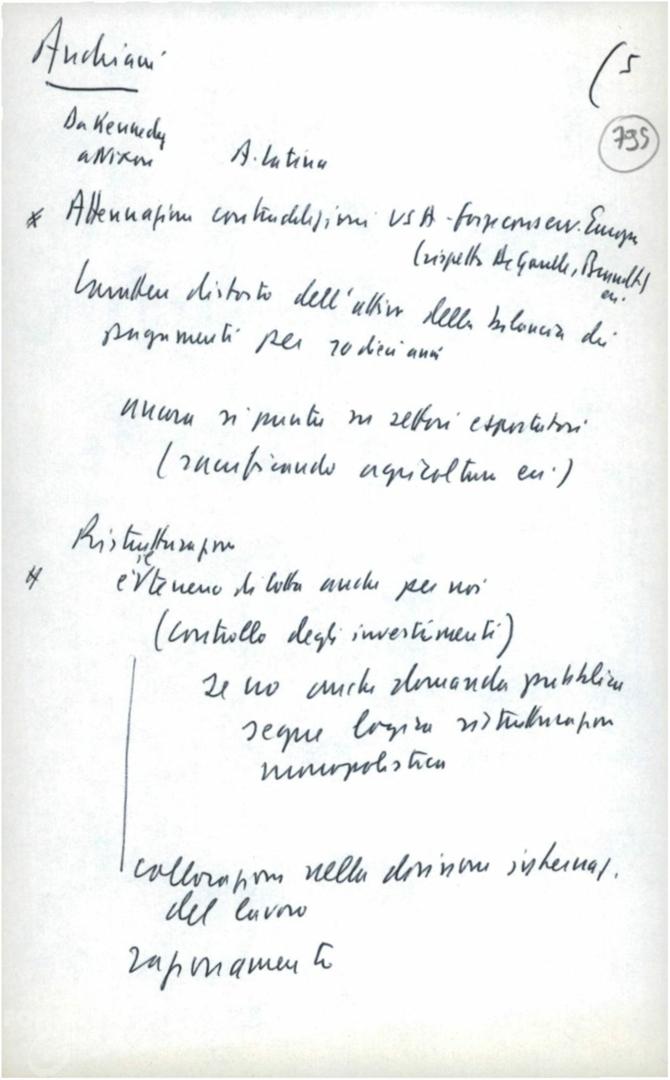 Anchiani
(5
795
Da Kennedy
a Nixon A. Latina
* Attenuazione contraddizioni USA - forze conserv. Europa
(rispetto De Gaulle, Brandt)
ecc.
Carattere distorto dell'attivo della bilancia dei
pagamenti per 10 dieci anni
ancora si punta su settori esportatori
(sacrificando agricoltura ecc.)
Ristrutturazione
* è terreno di lotta anche per noi
(controllo degli investimenti)
se no anche domanda pubblica
segue logica ristrutturazione
monopolistica
collocazione nella divisione internaz.
del lavoro
razionamento